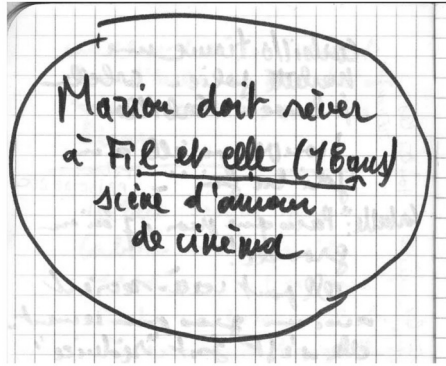 Marion doit rêver
à Fil et elle (18 ans)
scène d'amour
de cinéma